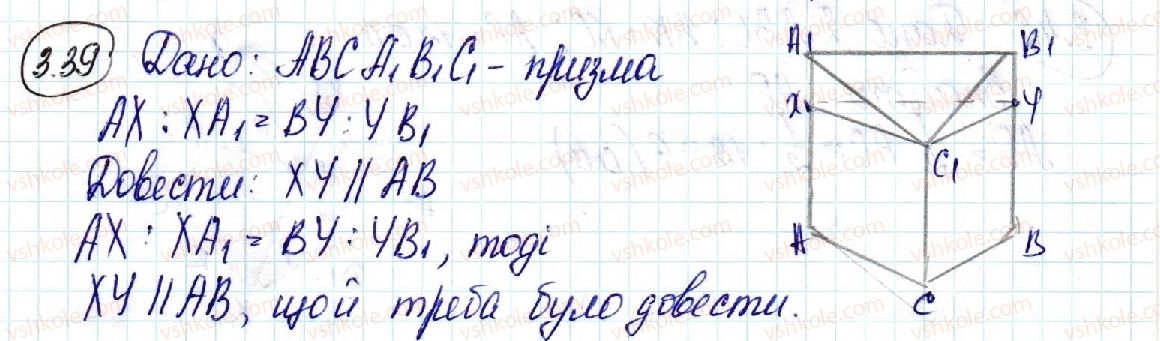 3.39 Дано: ABCA₁B₁C₁ - призма
AX : XA₁ = BY : YB₁
Довести: XY || AB
AX : XA₁ = BY : YB₁, тоді
XY || AB, щой треба було довести.
A₁ B₁
X Y
C₁
A B
C